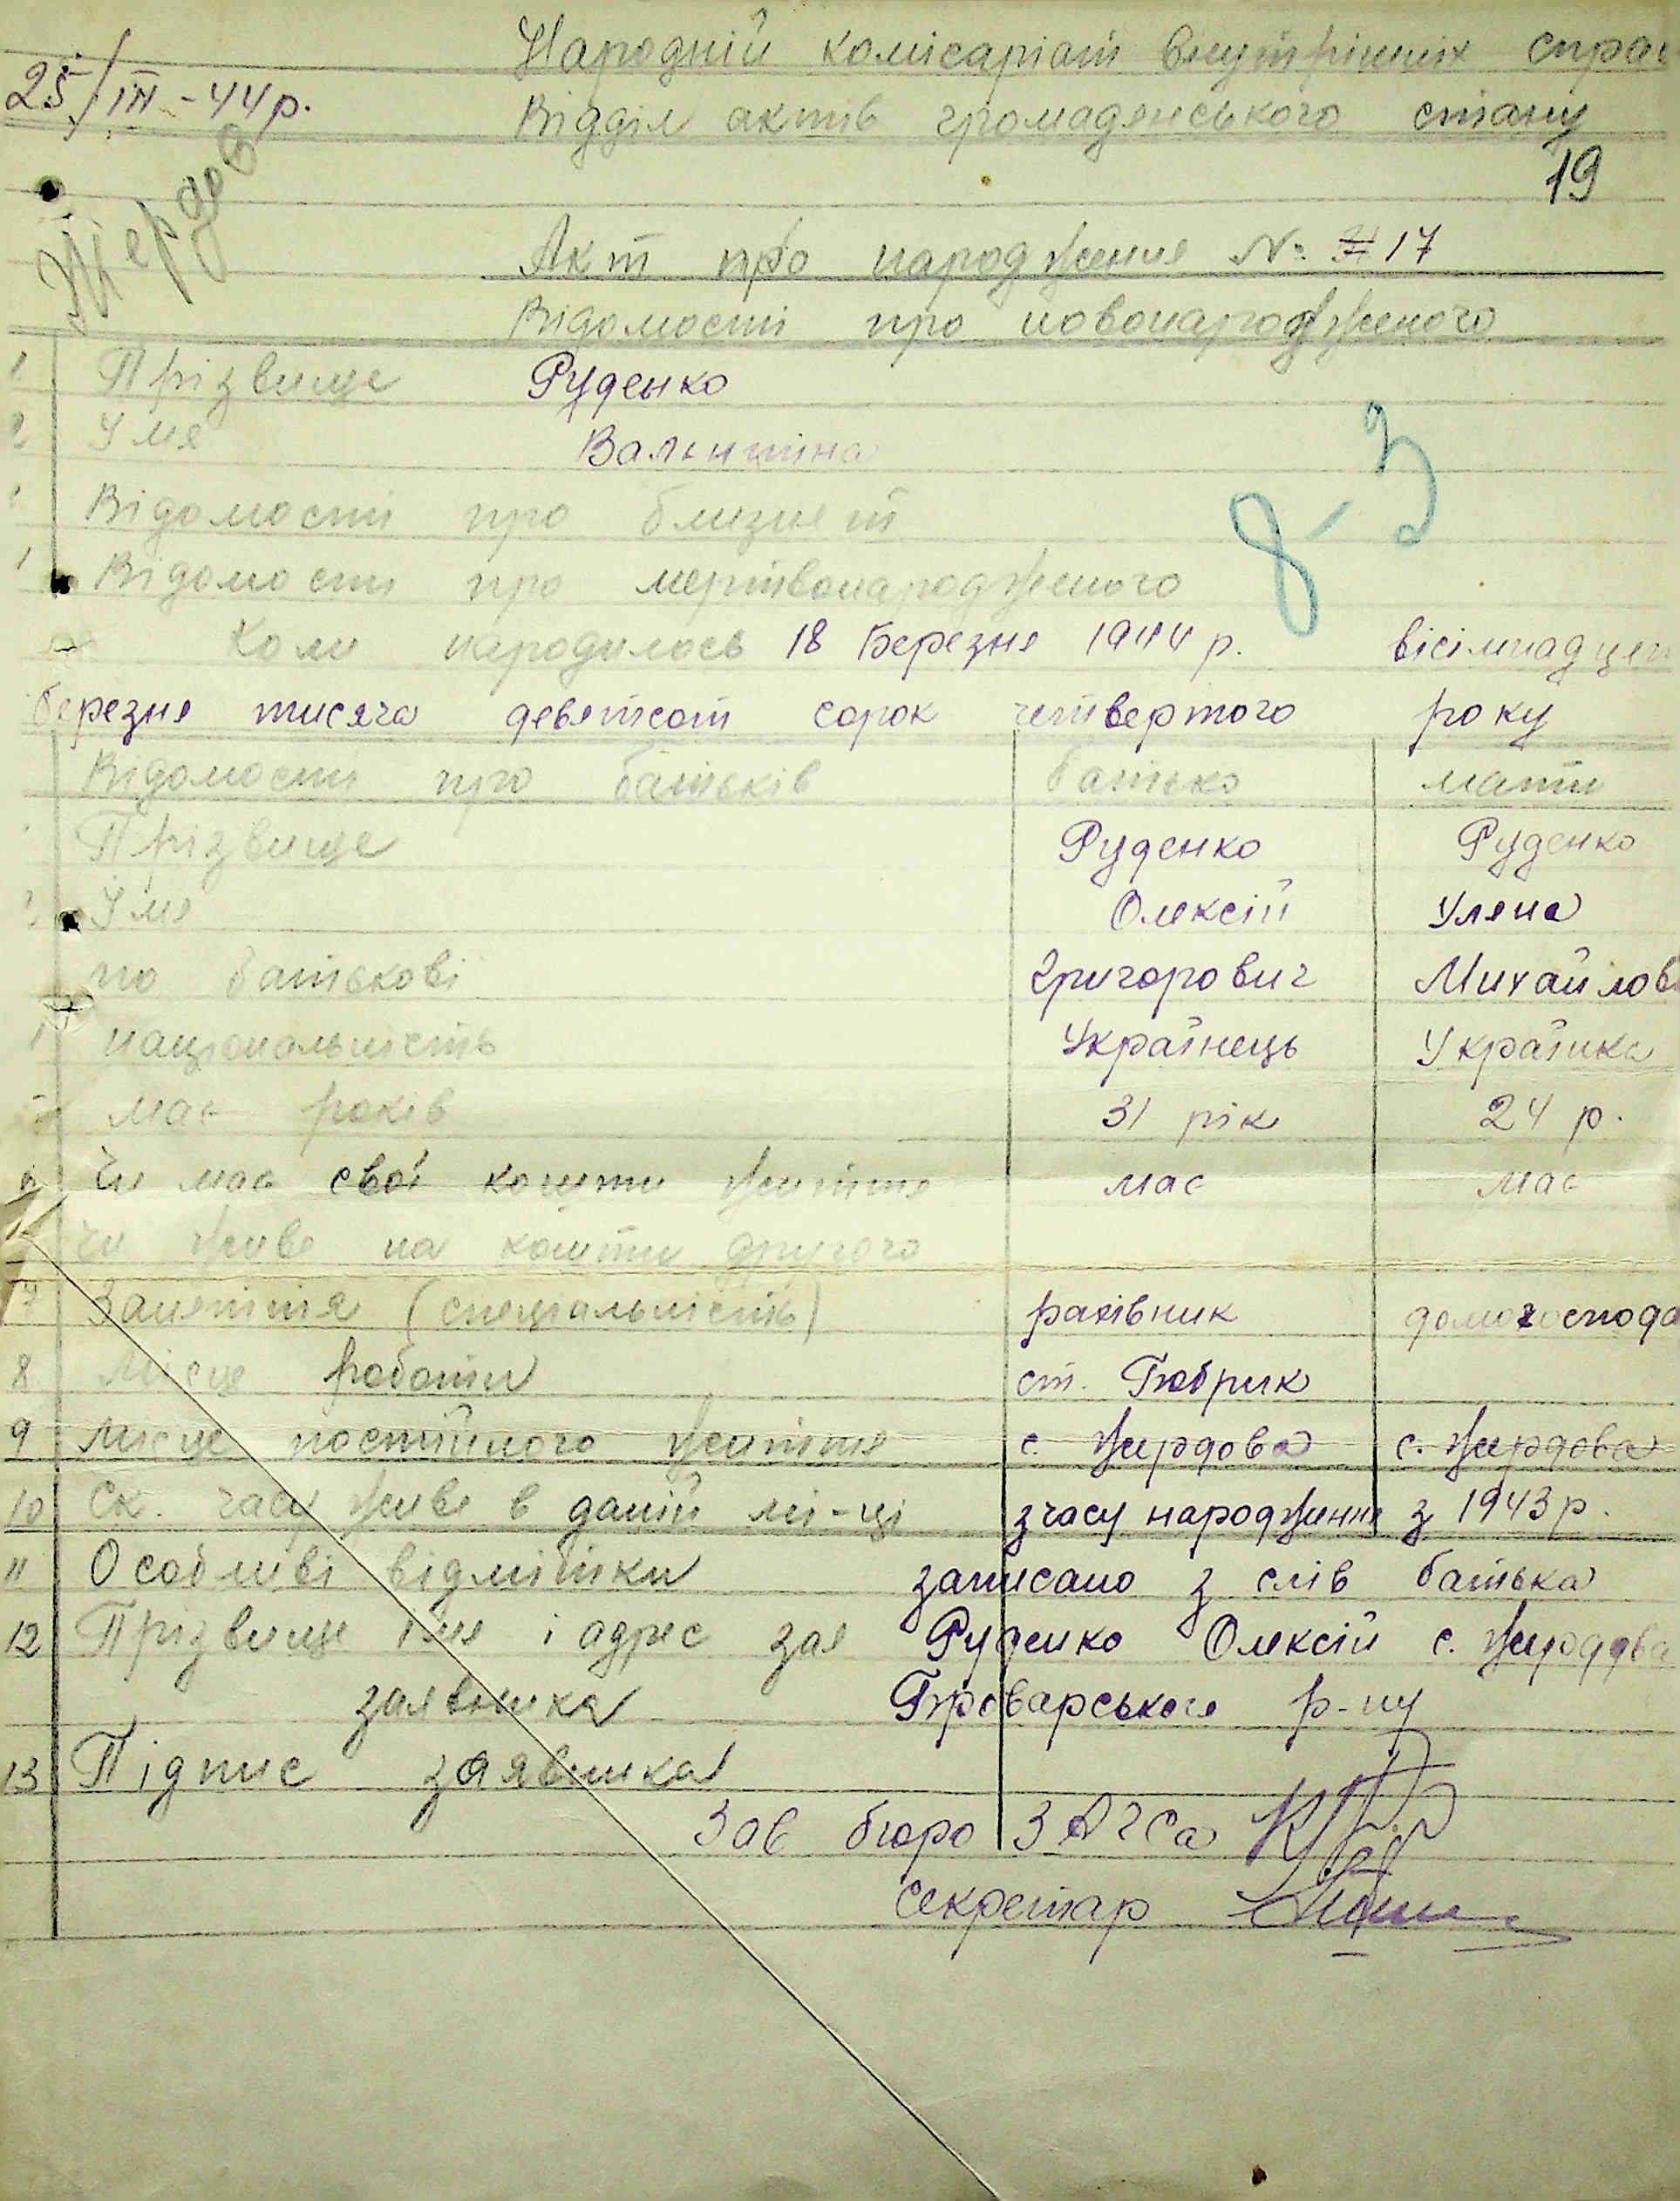 Народній комісаріат внутрішніх справ
25/III - 44 р.
Відділ актів громадянського стану
19
Жердов
Акт про народження № 17
Відомості про новонародженого
1 Прізвище Руденко
2 Імя Валентіна
Відомості про близнят
Відомости про мертвонародженого
8-3
Коли народилось 18 Березня 1944 р. вісімнадцят
березня тисяча девятсот сорок четвертого року
Відомости про батьків батько мати
Прізвище Руденко Руденко
Імя Олексій Уляна
по батькові Григорович Михайлов
національність Українець Українка
має років 31 рік 24 р.
Чи має свої кошти життя має має
чи живе на кошти другого
7 Заняття (спеціальність) рахівник домогоспода
8 Місце роботи ст. Бобрик
9 Місце постійного життя с. Жердова с. Жердова
10 Ск. часу живе в даній мі-ці з часу народження з 1943 р.
11 Особливі відмітки записано з слів батька
12 Прізвище імя і адрес зая Руденко Олексій с. Жердова
заявника Броварського р-ну
13 Підпис заявника
Зав бюро ЗАГСа
Секретар